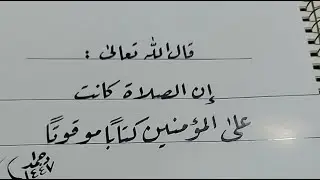 قال الله تعالى :
إن الصلاة كانت
على المؤمنين كتابًا موقوتًا
١٤٤٧